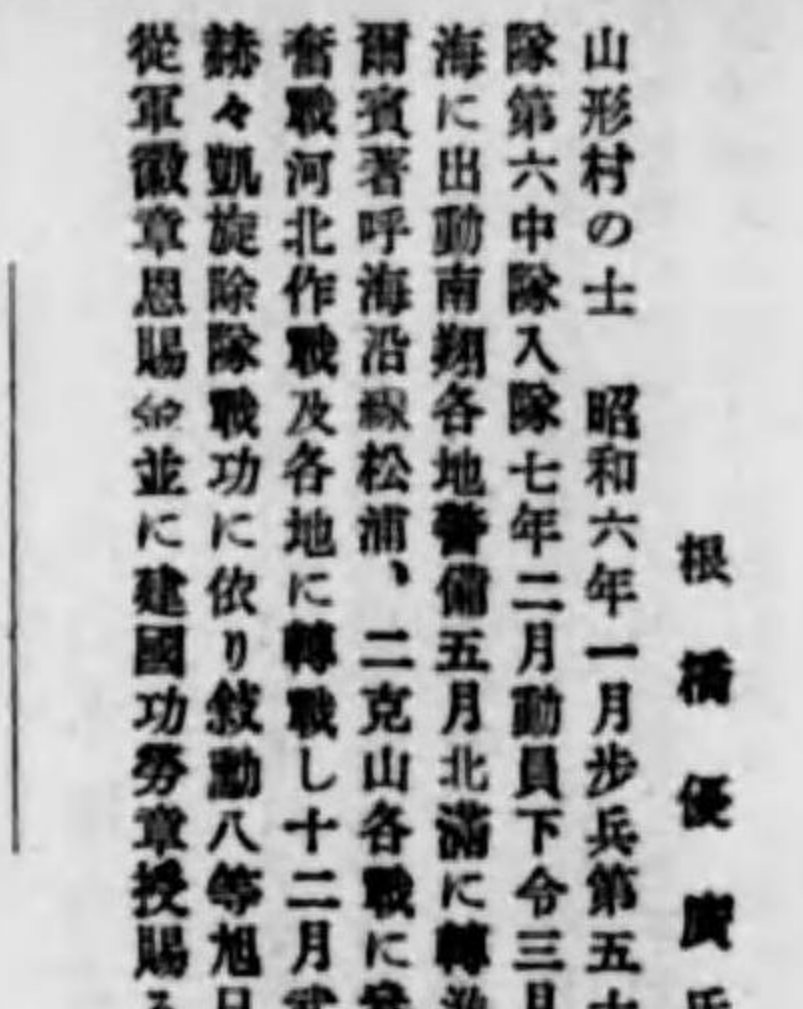 根橋優廣氏
山形村の士　昭和六年一月步兵第五十
隊第六中隊入隊七年二月動員下令三月
海に出動南翔各地警備五月北滿に轉
爾賓著呼海沿線松浦、二克山各戰に參
奮戰河北作戰及各地に轉戰し十二月武
勲々凱旋除隊戰功に依り敍勳八等旭日
從軍徽章恩賜金並に建國功勞章授賜る